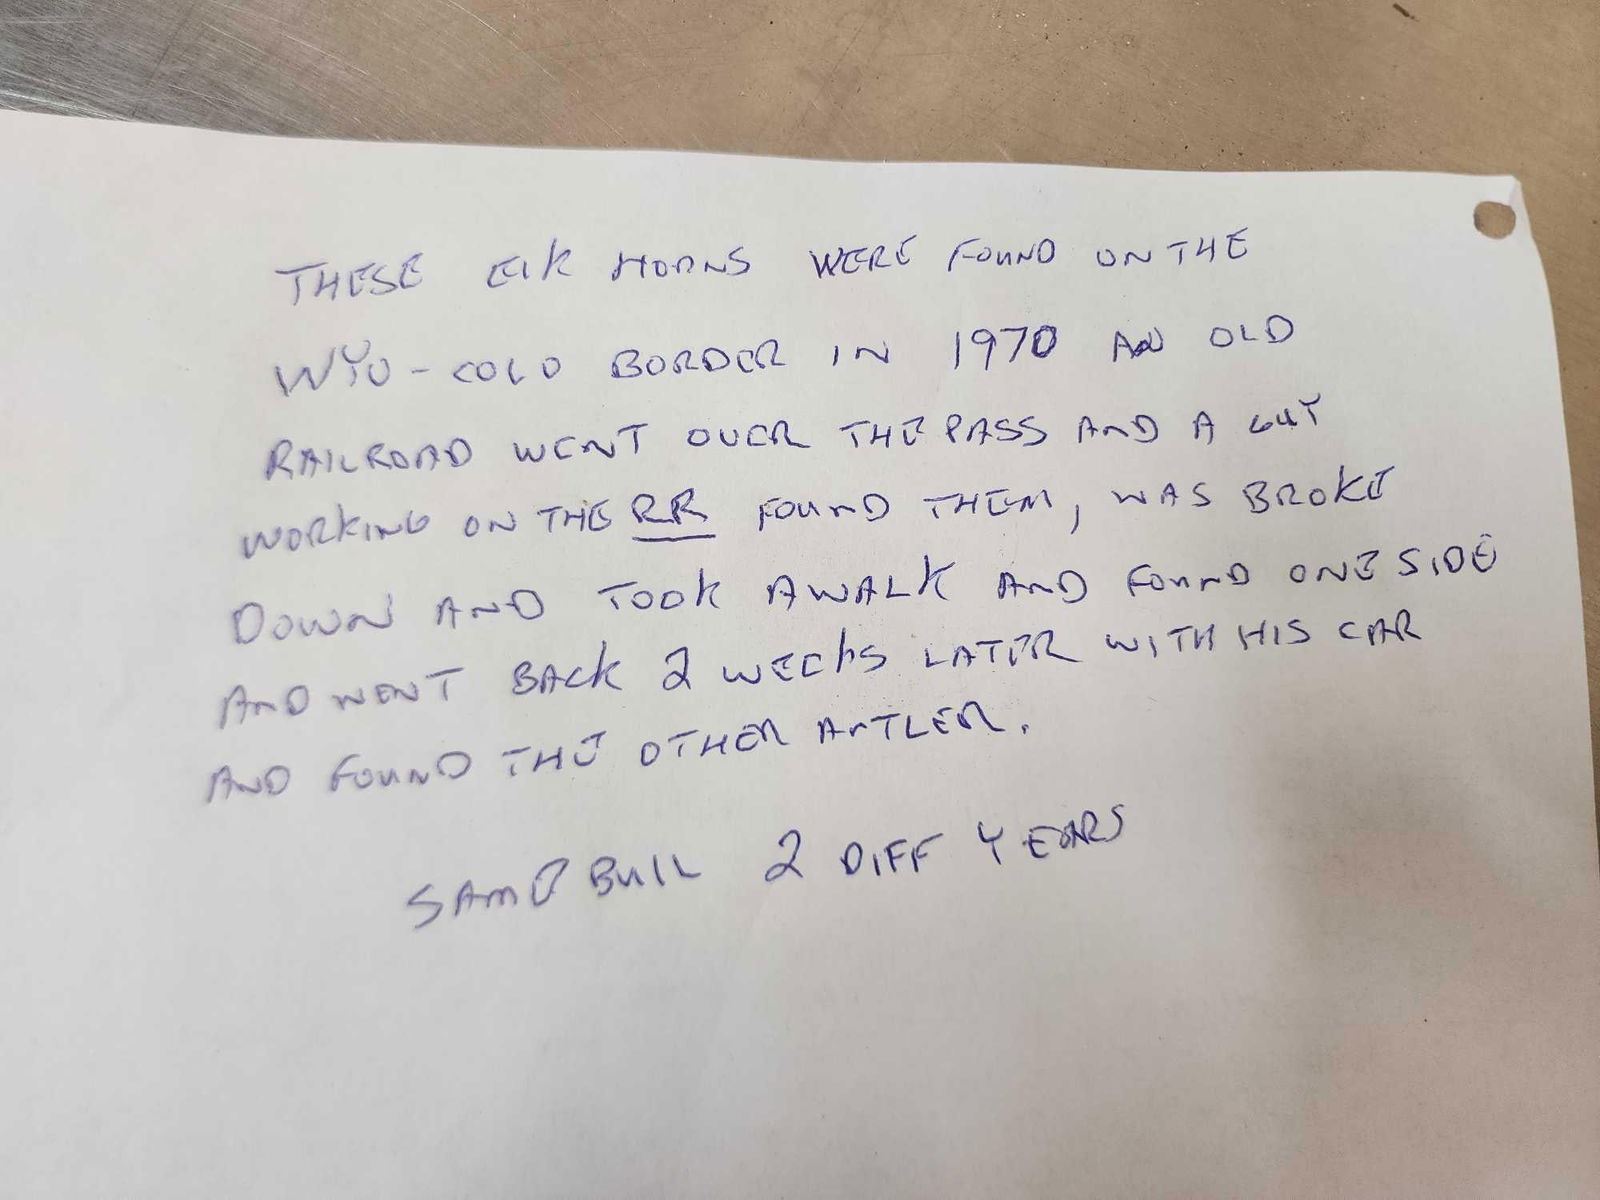 THESE ElK HORNS WERE FOUND ON THE
WYO - COLO BORDER IN 1970 AN OLD
RAILROAD WENT OVER THE PASS AND A GUY
WORKING ON THE RR FOUND THEM, WAS BROKE
DOWN AND TOOK A WALK AND FOUND ONE SIDE
AND WENT BACK 2 WEEKS LATER WITH HIS CAR
AND FOUND THE OTHER ANTLER.
SAME BULL 2 DIFF YEARS